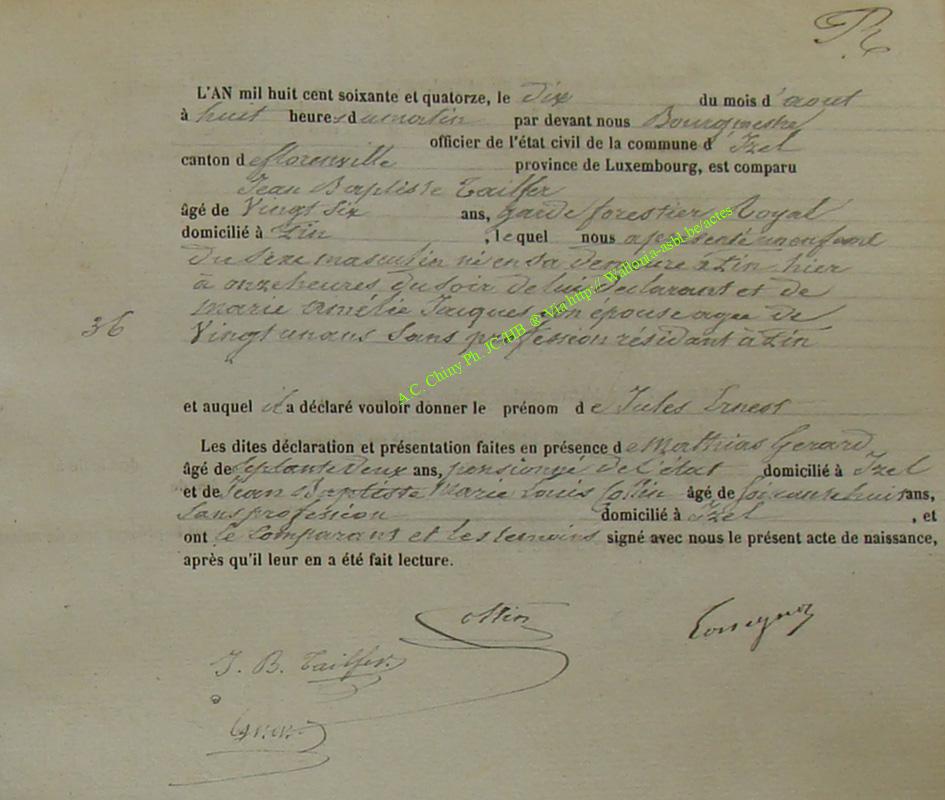 L'AN mil huit cent soixante et quatorze, le dix du mois d'aout
à huit heures du matin par devant nous Bourgmestre
officier de l'état civil de la commune d'Izel
canton de florenville province de Luxembourg, est comparu
Jean Baptiste Tailfer
âgé de Vingt six ans, garde forestier Royal
domicilié à Zin , lequel nous a présenté un enfant
du sexe masculin né en sa demeure à Zin hier
à onze heures du soir de lui déclarant et de
36
marie Amélie Jacques son épouse agée de
Vingt un ans Sans profession résidant à Zin
et auquel il a déclaré vouloir donner le prénom de Jules Ernest
Les dites déclaration et présentation faites en présence de Mathias Gerard
âgé de Septante Deux ans, pensionné de l'état domicilié à Izel
et de Jean Baptiste Marie Louis Collin âgé de soixante huit ans,
Sans profession domicilié à Izel , et
ont le Comparant et les temoins signé avec nous le présent acte de naissance,
après qu'il leur en a été fait lecture.
J. B. Tailfer
A.C. Chiny Ph. JC HB @ Via http:// Wallonia-asbl.be/actes